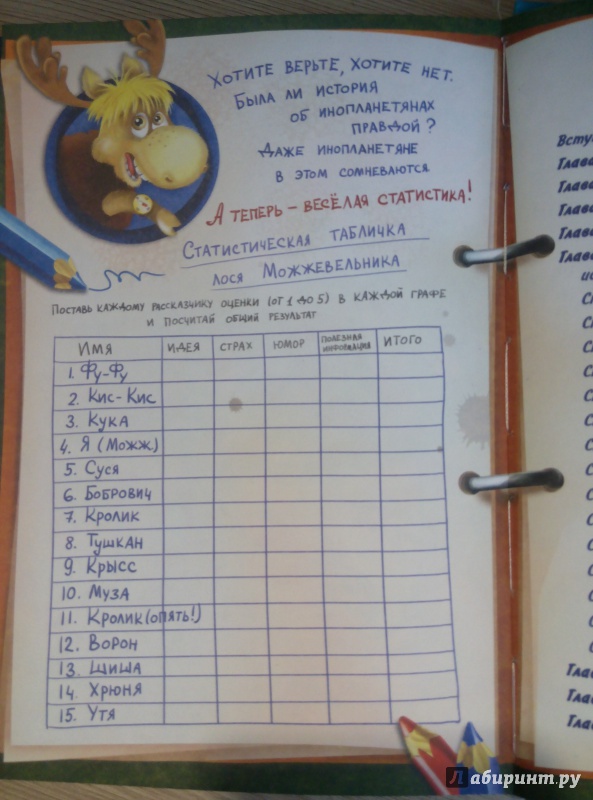 Хотите верьте, хотите нет.
Была ли история
об инопланетянах
правдой?
Даже инопланетяне
в этом сомневаются
А теперь – весёлая статистика!
Статистическая табличка
лося Можжевельника
Поставь каждому рассказчику оценки (от 1 до 5) в каждой графе
и посчитай общий результат
Имя идея страх юмор полезная информация итого
1. Фу-Фу
2. Кис-Кис
3. Кука
4. Я (Можж)
5. Суся
6. Бобрович
7. Кролик
8. Тушкан
9. Крысс
10. Муза
11. Кролик (опять!)
12. Ворон
13. Шиша
14. Хрюня
15. Утя
Всту
Глава
Глава
Глава
Глава
Глава
Глав
Глав
Глав
Лабиринт.ру